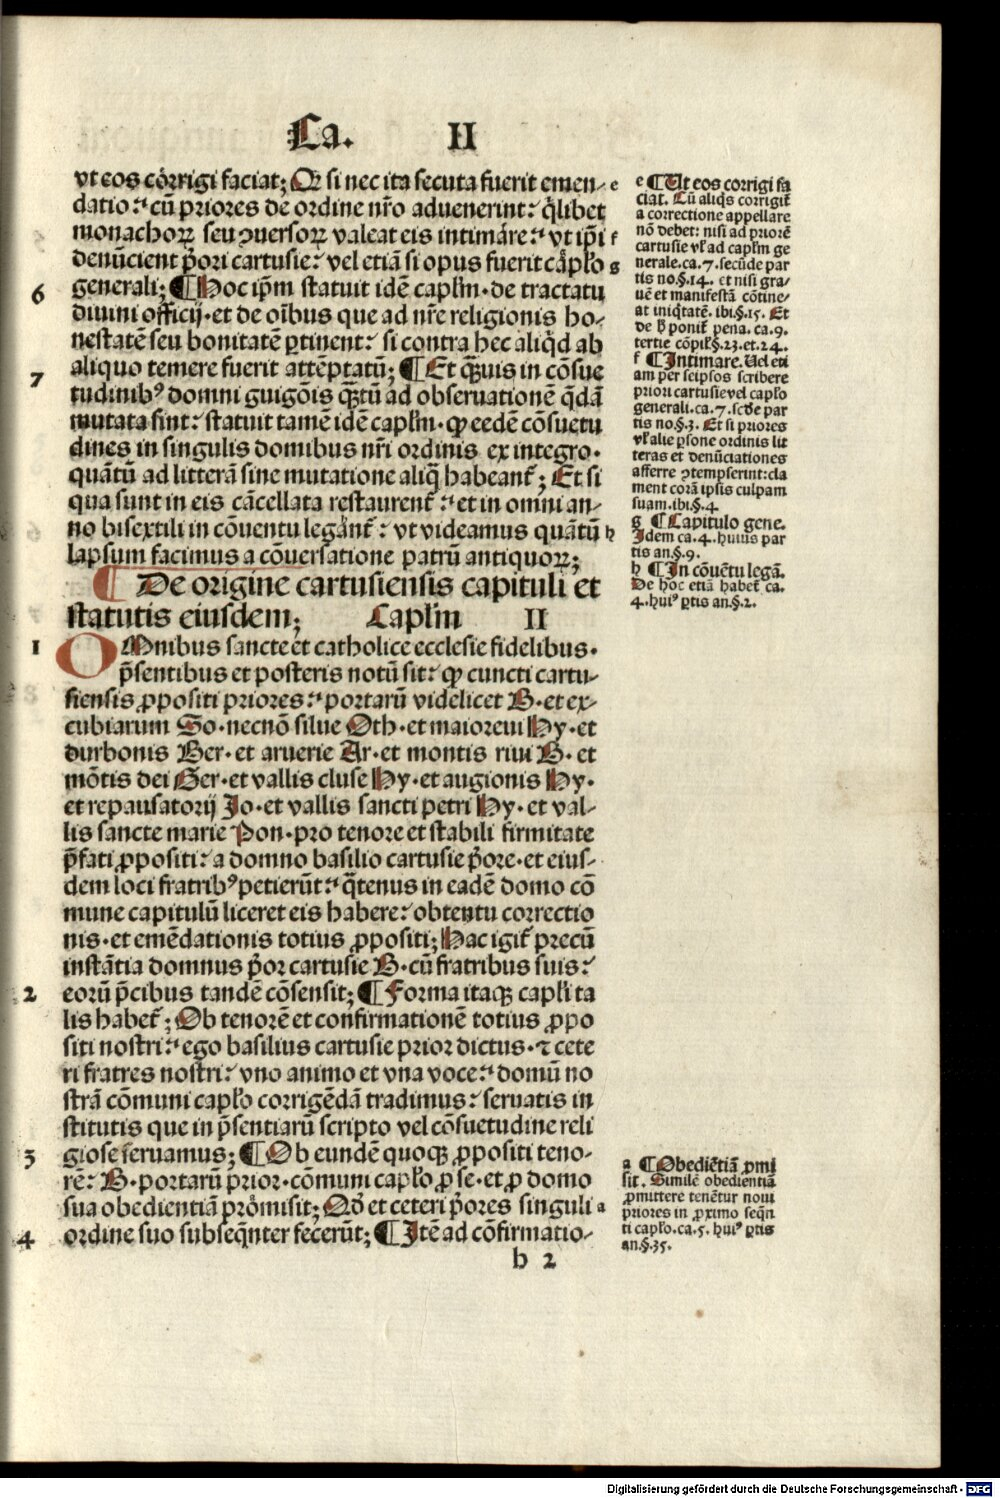 Ca. II
vt eos corrigi faciat; Qz si nec ita secuta fuerit emen- e
datio: cū priores de ordine nr̄o aduenerint: q̄libet
monachoꝝ seu ꝯuersoꝝ valeat eis intimare: vt ip̄i f
denūcient p̄ori cartusie: vel etiā si opus fuerit cap̄lo g
6 generali; ¶ Hoc ip̄m statuit idē capl̄m. de tractatu
diuini officij. et de oībus que ad nr̄e religionis ho-
nestatē seu bonitatē ꝑtinent: si contra hec aliq̄d ab
7 aliquo temere fuerit attēptatū; ¶ Et q̄ꝫuis in cōsue
tudinibꝰ domni guigōis q̄ꝫtū ad obseruationē q̄dā
mutata sint: statuit tamē idē capl̄m. ꝙ eedē cōsuetu
dines in singulis domibus nr̄i ordinis ex integro.
quātū ad litterā sine mutatione aliq̄ habeant̄; Et si
qua sunt in eis cācellata restaurent̄: et in omni an-
no bisextili in cōuentu legant̄: vt videamus quātū h
lapsum facimus a cōuersatione patrū antiquoꝝ;
¶ De origine cartusiensis capituli et
statutis eiusdem; Capl̄m II
1 OMnibus sancte et catholice ecclesie fidelibus.
p̄sentibus et posteris notū sit: ꝙ cuncti cartu-
siensis ꝓpositi priores: portarū videlicet B. et ex-
cubiarum So. necnō silue Oth. et maioreui Hy. et
durbonis Ber. et aruerie Ar. et montis riui B. et
mōtis dei Ger. et vallis cluse Hy. et augionis Hy.
et repausatorij Jo. et vallis sancti petri Hy. et val-
lis sancte marie Pon. pro tenore et stabili firmitate
p̄fati ꝓpositi: a domno basilio cartusie p̄ore. et eius-
dem loci fratribꝰ petierūt: q̄tenus in eadē domo cō
mune capitulū liceret eis habere: obtentu correctio
nis. et emēdationis totius ꝓpositi; Hac igit̄ precū
instātia domnus p̄or cartusie B. cū fratribus suis:
2 eorū p̄cibus tandē cōsensit; ¶ Forma itaqꝫ capl̄i ta
lis habet̄; Ob tenorē et confirmationē totius ꝓpo
siti nostri: ego basilius cartusie prior dictus. ⁊ cete
ri fratres nostri: vno animo et vna voce: domū no
strā cōmuni cap̄lo corrigēdā tradimus: seruatis in
stitutis que in p̄sentiarū scripto vel cōsuetudine reli
3 giose seruamus; ¶ Ob eundē quoqꝫ ꝓpositi teno-
rē: B. portarū prior. cōmuni cap̄lo ꝓ se. et ꝓ domo
sua obedientiā promisit; Qd̄ et ceteri p̄ores singuli a
4 ordine suo subseq̄nter fecerūt; ¶ Itē ad cōfirmatio-
b 2
e ¶ Ut eos corrigi fa
ciat. Cū aliq̄s corrigit̄
a correctione appellare
nō debet: nisi ad priorē
cartusie vl̄ ad capl̄m ge
nerale. ca. 7. secūde par
tis no. §. 14. et nisi gra-
uē et manifestā cōtine-
at iniq̄tatē. ibi. §. 15. Et
de h̄ ponit̄ pena. ca. 9.
tertie cōpil̄. §. 23. et. 24.
f ¶ Intimare. Uel eti
am per seipsos scribere
priori cartusie vel cap̄lo
generali. ca. 7. scd̄e par
tis no. §. 3. Et si priores
vl̄ alie ꝑsone ordinis lit
teras et denūciationes
afferre ꝯtempserint: cla
ment corā ipsis culpam
suam. ibi. §. 4.
g ¶ Capitulo gene.
Idem ca. 4. huius par
tis an. §. 9.
h ¶ In cōuētu legā.
De hoc etiā habet̄ ca.
4. huiꝰ ꝑtis an. §. 2.
a ¶ Obediētiā ꝓmi
sit. Similē obedientiā
ꝓmittere tenētur noui
priores in ꝓximo seq̄n
ti cap̄lo. ca. 5. huiꝰ ꝑtis
an. §. 35.
Digitalisierung gefördert durch die Deutsche Forschungsgemeinschaft - DFG